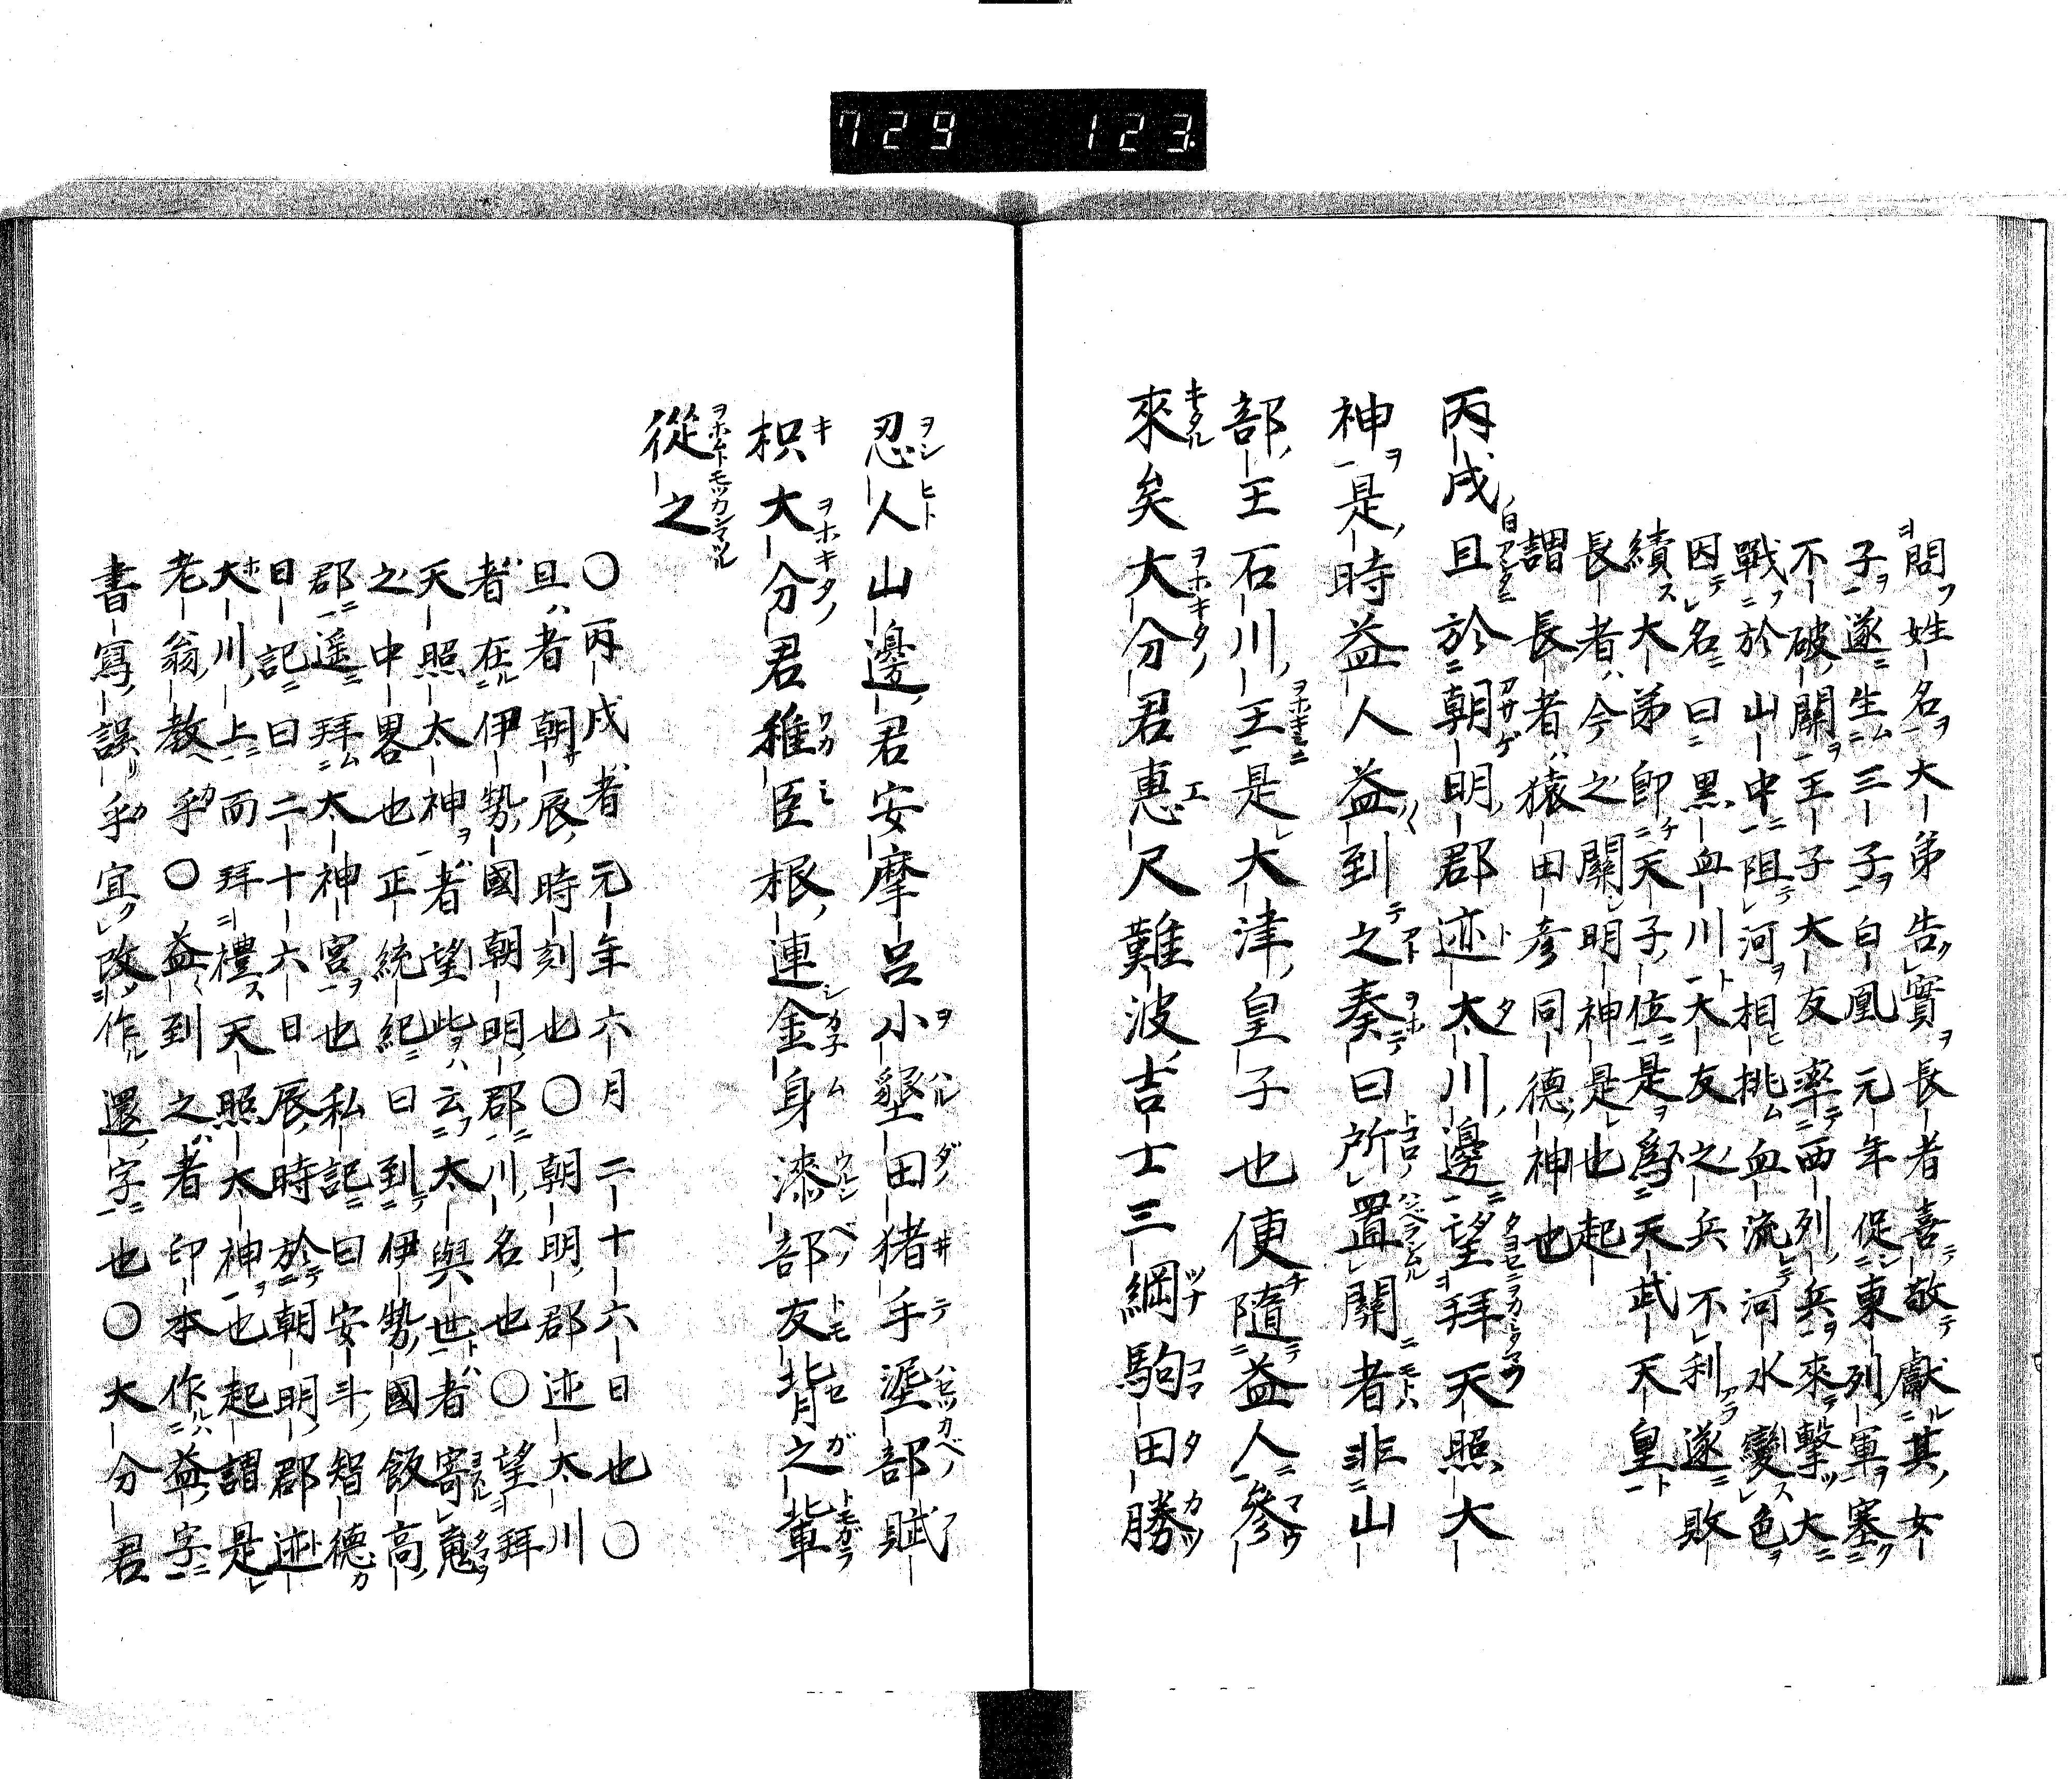 729 123
問姓名大弟告實長者喜敬獻其女
子遂生三子白凰元年促東列軍塞
不破關王子大友率西列兵來擊大
戰於山中阻河相挑血流河水變色
因名曰黒血川大友之兵不利遂敗
續大弟即天子位是爲天武天皇
長者今之關明神是也起
謂長者猿田彦同德神也
丙戌旦於朝明郡迹太川邊望拜天照大
神是時益人益到之奏曰所置關者非山
部王石川王是大津皇子也便隨益人參
來矣大分君惠尺難波吉士三綱駒田勝
忍人山邊君安摩呂小墾田猪手埿部賦
枳大分君稚臣根連金身漆部友背之輩
從之
〇丙戌者元年六月二十六日也〇
旦者朝辰時刻也〇朝明郡迹太川
者在伊勢國朝明郡川名也〇望拜
天照太神者望此云太與世者寄蒐
之中畧也正統紀曰到伊勢國飯高
郡遥拜太神宮也私記曰安斗智德
日記曰二十六日辰時於朝明郡迹
大川上而拜禮天照太神也起謂是
老翁教乎〇益到之者印本作益字
書寫誤乎宜改作還字也〇大分君